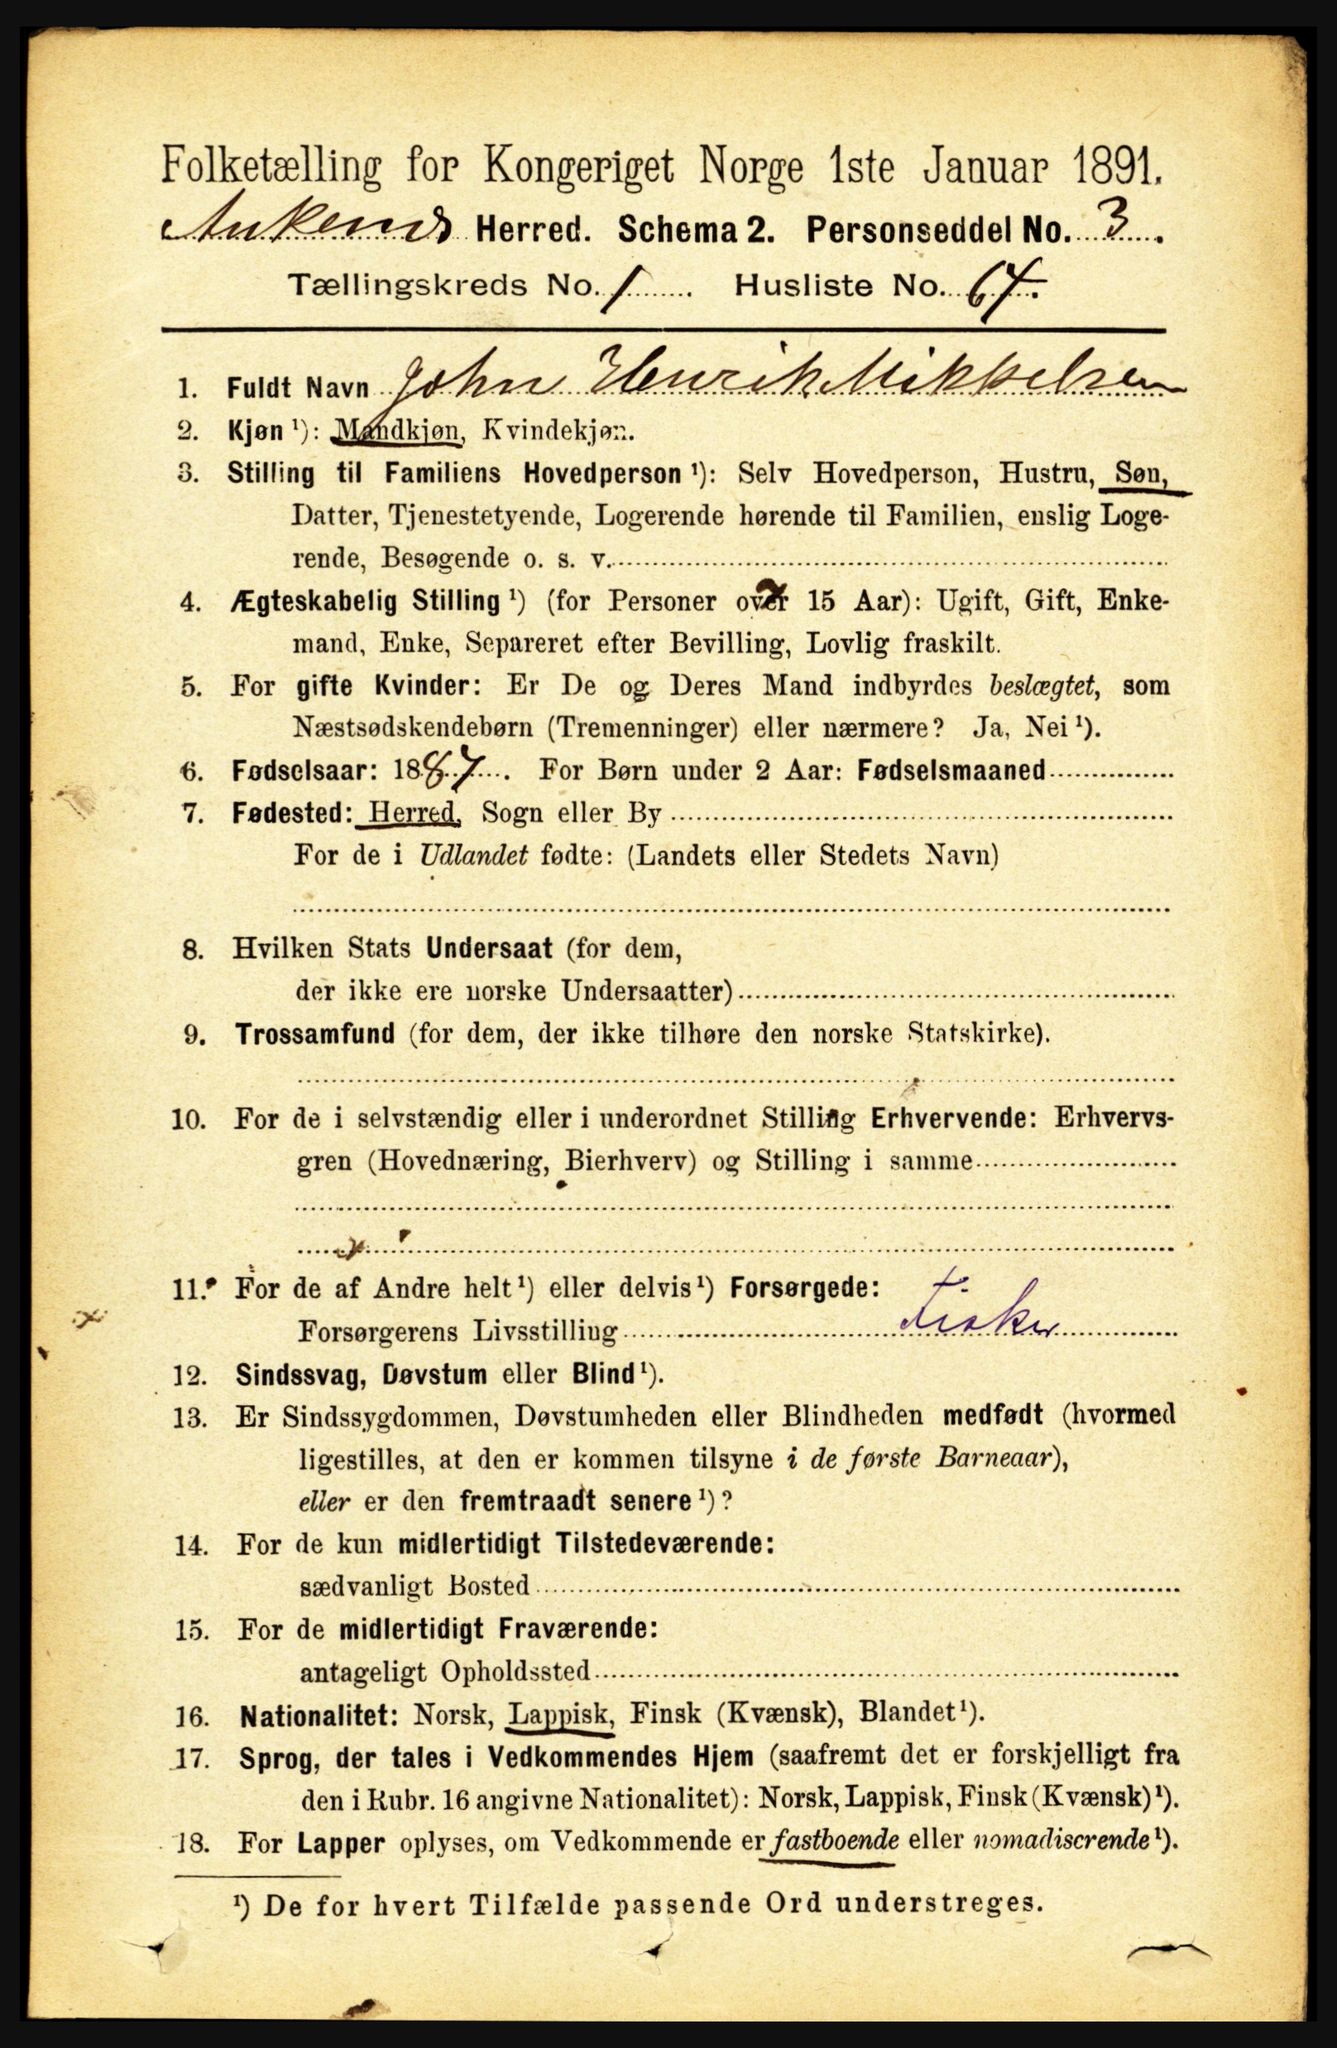 Folketælling for Kongeriget Norge 1ste Januar 1891.
Ankenes Herred. Schema 2. Personseddel No. 3.
Tællingskreds No. 1. Husliste No. 64.
1. Fuldt Navn John Henrik Mikkelsen
2. Kjøn ¹): Mandkjøn, Kvindekjøn.
3. Stilling til Familiens Hovedperson ¹): Selv Hovedperson, Hustru, Søn,
Datter, Tjenestetyende, Logerende hørende til Familien, enslig Loge-
rende, Besøgende o. s. v.
4. Ægteskabelig Stilling ¹) (for Personer over 15 Aar): Ugift, Gift, Enke-
mand, Enke, Separeret efter Bevilling, Lovlig fraskilt.
5. For gifte Kvinder: Er De og Deres Mand indbyrdes beslægtet, som
Næstsødskendebørn (Tremenninger) eller nærmere? Ja, Nei ¹).
6. Fødselsaar: 1887. For Børn under 2 Aar: Fødselsmaaned
7. Fødested: Herred, Sogn eller By
For de i Udlandet fødte: (Landets eller Stedets Navn)
8. Hvilken Stats Undersaat (for dem,
der ikke ere norske Undersaatter)
9. Trossamfund (for dem, der ikke tilhøre den norske Statskirke).
10. For de i selvstændig eller i underordnet Stilling Erhvervende: Erhvervs-
gren (Hovednæring, Bierhverv) og Stilling i samme
11. For de af Andre helt ¹) eller delvis ¹) Forsørgede:
Forsørgerens Livsstilling Fisker
12. Sindssvag, Døvstum eller Blind ¹).
13. Er Sindssygdommen, Døvstumheden eller Blindheden medfødt (hvormed
ligestilles, at den er kommen tilsyne i de første Barneaar),
eller er den fremtraadt senere ¹)?
14. For de kun midlertidigt Tilstedeværende:
sædvanligt Bosted
15. For de midlertidigt Fraværende:
antageligt Opholdssted
16. Nationalitet: Norsk, Lappisk, Finsk (Kvænsk), Blandet ¹).
17. Sprog, der tales i Vedkommendes Hjem (saafremt det er forskjelligt fra
den i Rubr. 16 angivne Nationalitet): Norsk, Lappisk, Finsk (Kvænsk) ¹).
18. For Lapper oplyses, om Vedkommende er fastboende eller nomadiserende ¹).
¹) De for hvert Tilfælde passende Ord understreges.